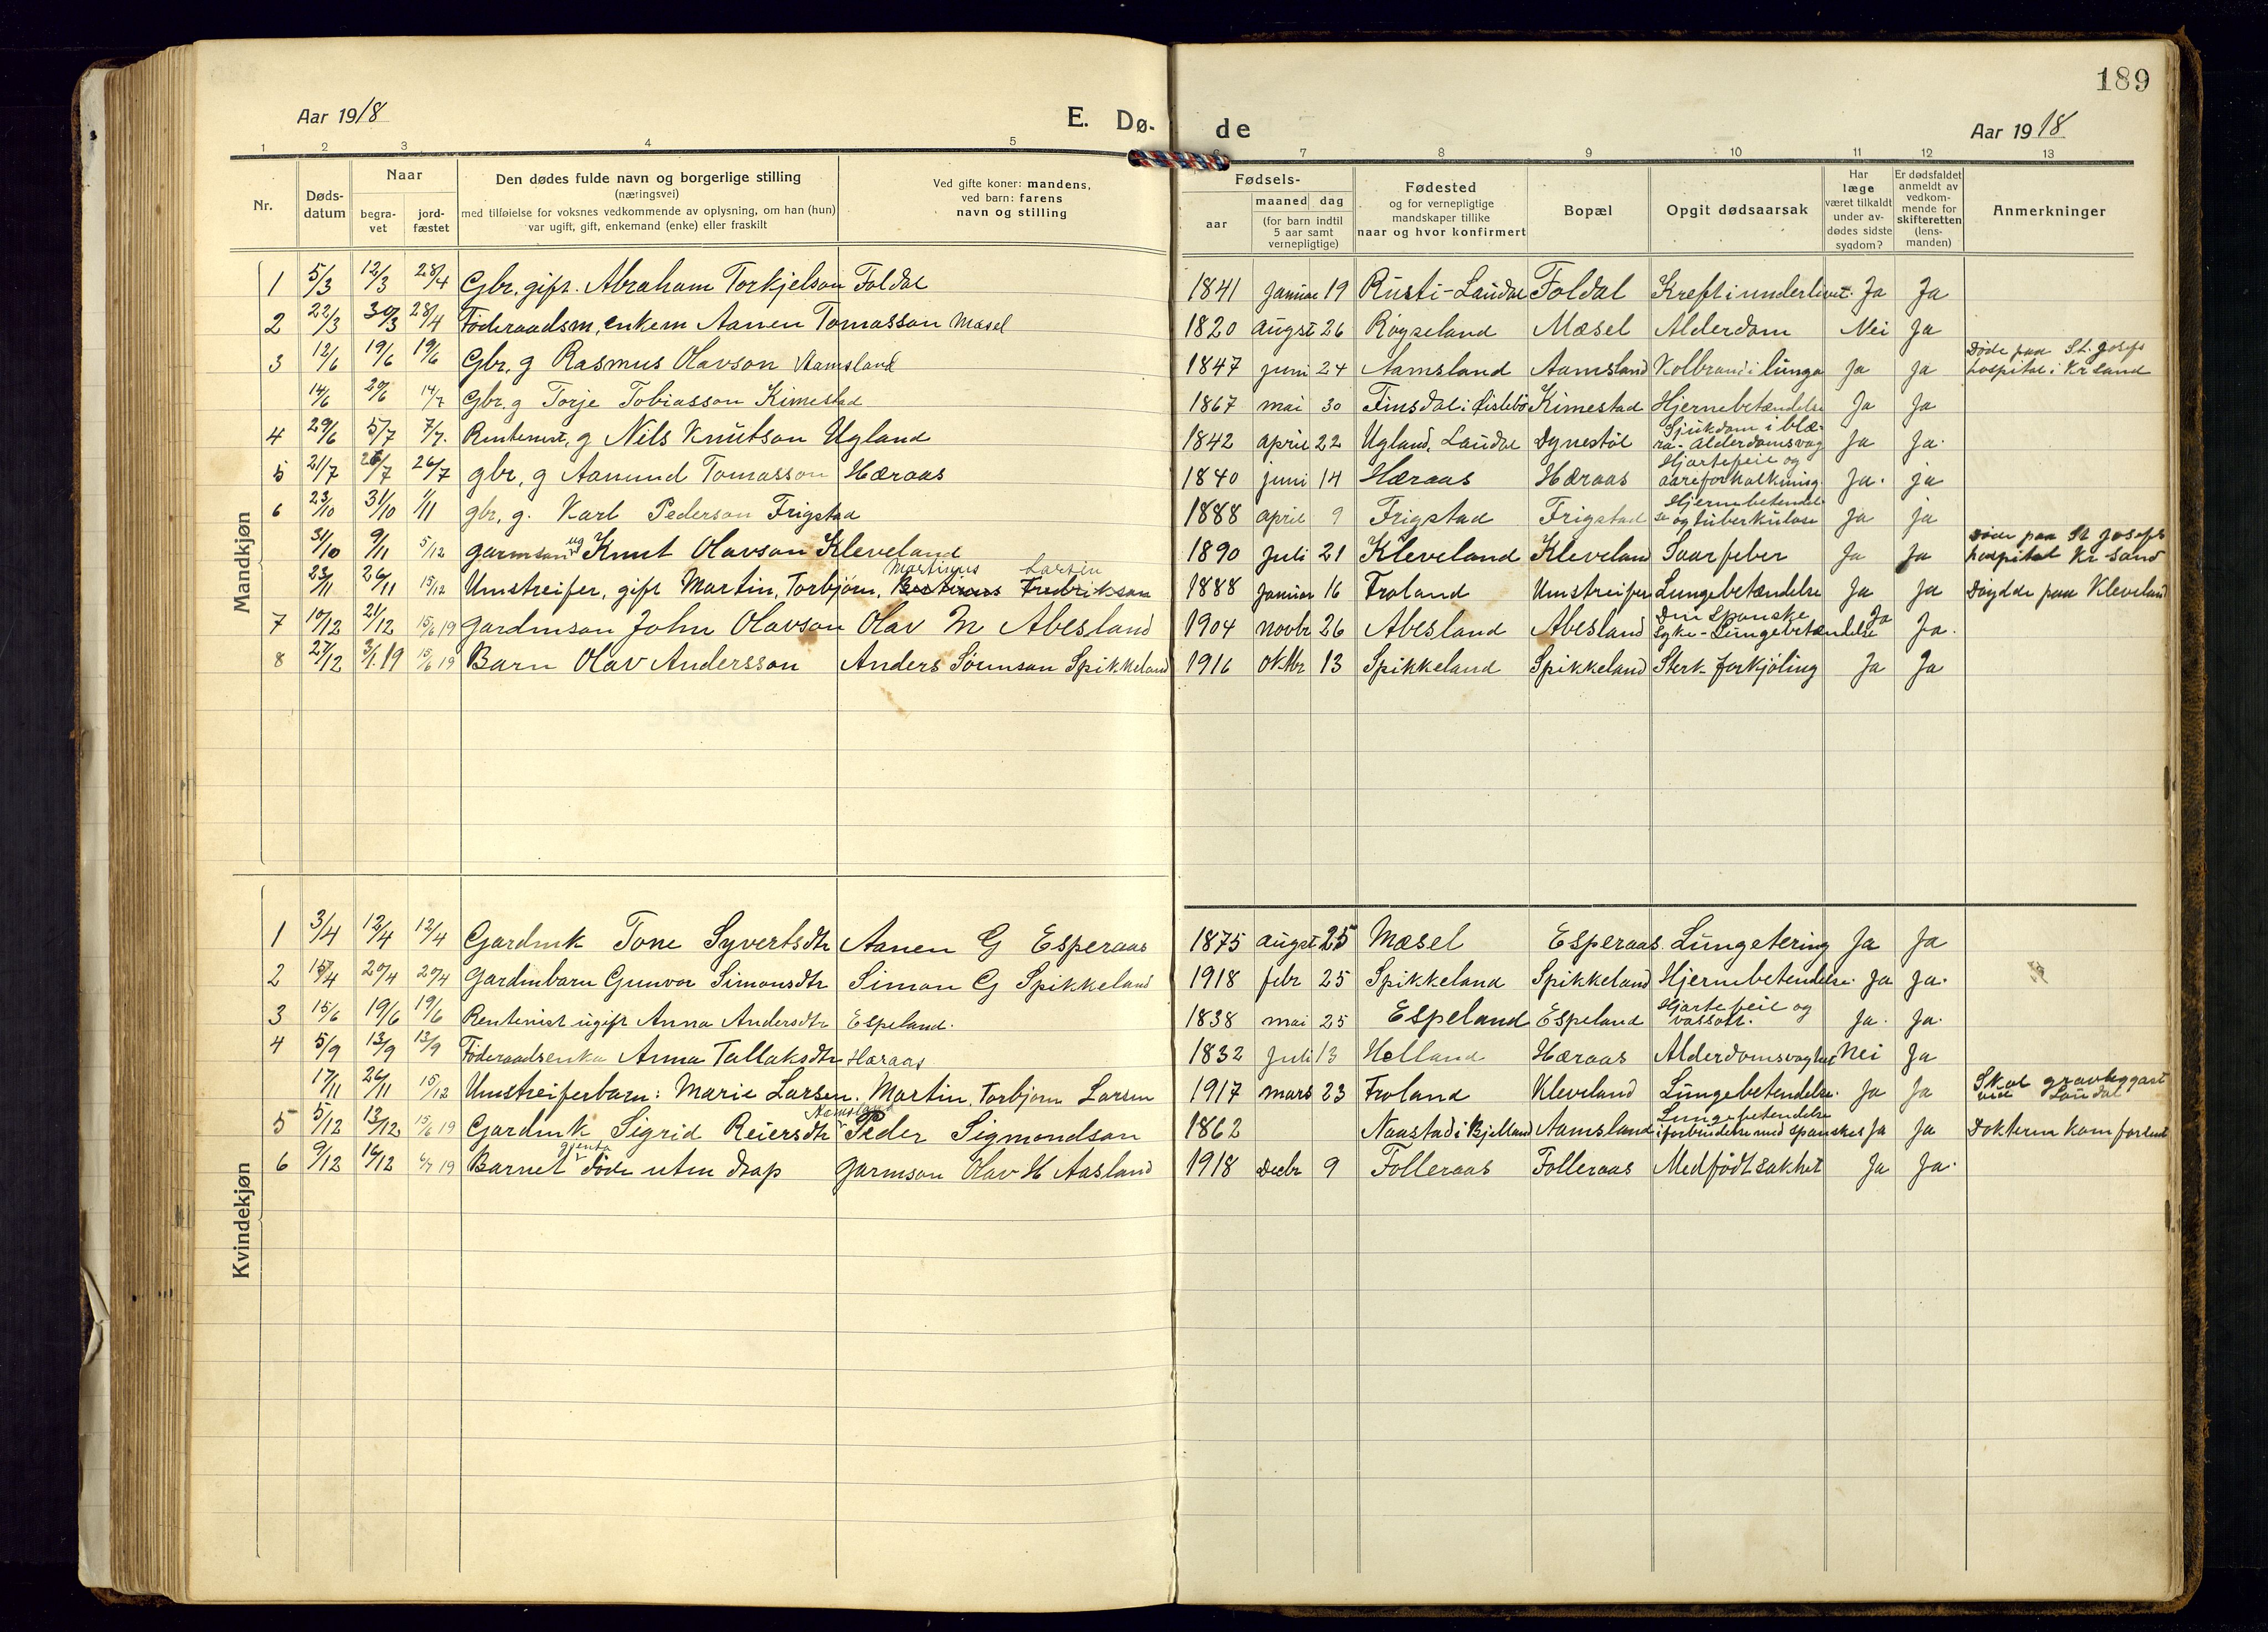 189
Aar 1918 E. Dø- de Aar 1918
1 2 3 4 5 7 8 9 10 11 12 13
Nr. Døds-datum Naar begra-vet jord-fæstet Den dødes fulde navn og borgerlige stilling (næringsvei) med tilføielse for voksnes vedkommende av oplysning, om han (hun) var ugift, gift, enkemand (enke) eller fraskilt Ved gifte koner: mandens, ved barn: farens navn og stilling Fødsels- aar maaned dag (for barn indtil 5 aar samt vernepligtige) Fødested og for vernepligtige mandskaper tillike naar og hvor konfirmert Bopæl Opgit dødsaarsak Har læge været tilkaldt under av-dødes sidste sygdom? Er dødsfaldet anmeldt av vedkom-mende for skifteretten (lens-manden) Anmerkninger
Mandkjøn
1 5/3 12/3 28/4 Gbr. gift. Abraham Torkjelson Foldal 1841 Januar 19 Rusti-Laudal Foldal Kreft i underlivet. Ja Ja
2 22/3 30/3 28/4 Føderaadsm, enkem Aanen Tomasson Mæsel 1820 augst 26 Røyseland Mæsel Alderdom Nei Ja
3 12/6 19/6 19/6 Gbr, g Rasmus Olavson Aamsland 1847 juni 24 Aamsland Aamsland Kolbrand i lunga Ja Ja Døde paa St. Josefs hospital i Kr sand
14/6 20/6 14/7 Gbr, g Torje Tobiasson Kimestad 1867 mai 30 Finsdal i Øislebø Kimestad Hjernebetændelse Ja Ja
4 29/6 5/7 7/7. Rentenist, g Nils Knutson Ugland 1842 april 22 Ugland, Laudal Dynestøl Sjukdom i blæ-ra - Alderdomsvag Ja Ja.
5 21/7 26/7 26/7 gbr, g Aamund Tomasson Hæraas 1840 juni 14 Hæraas Hæraas Hjartefeil og aareforkalkning Ja. ja
6 23/10 31/10 1/11 gbr, g. Karl Pederson Frigstad 1888 april 9 Frigstad Frigstad Hjernebetendel-se og tuberkulose Ja ja
31/10 9/11 5/12 garmson ug Knut Olavson Kleveland 1890 Juli 21 Kleveland Kleveland Saarfeber Ja Ja Døde paa St Josefs hospital Kr sand
23/11 26/11 15/12 Umstreifer, gift Martin, Torbjørn, Martinus Larsen Fredrikson 1888 Januar 16 Froland Umstreifer Lungebetændelse Ja Ja Døydde paa Kleveland
7 10/12 21/12 15/6 19 gardmson John Olavson Olav M Abesland 1904 novbr 26 Abesland Abesland Den Spanske syke - Lungebetændelse Ja Ja.
8 27/12 3/1. 19 15/6 19 Barn Olav Andersson Anders Sørenson Spikkeland 1916 oktbr 13 Spikkeland Spikkeland Sterk forkjøling Ja Ja
Kvindekjøn
1 3/4 12/4 12/4 Gardmk Tone Syvertsdtr Aanen G Esperaas 1875 augst 25 Mæsel Esperaas Lungetering Ja Ja
2 15/4 20/4 20/4 Gardmbarn Gunvor Simonsdtr Simon G Spikkeland 1918 febr 25 Spikkeland Spikkeland Hjernebetendelse. Ja Ja.
3 15/6 19/6 19/6 Rentenist ugift Anna Andersdtr Espeland. 1838 mai 25 Espeland Espeland Hjartefeil og vassott. Ja. Ja.
4 5/9 13/9 13/9 Føderaadsenka Anna Tallaksdtr Hæraas 1832 Juli 13 Holland Hæraas Alderdomsvaghet Nei Ja
17/11 26/11 15/12 Umstreiferbarn: Marie Larsen. Martin, Torbjørn Larsen 1917 mars 23 Froland Kleveland Lungebetendelse. Ja Ja Skal gravleggast ved Laudal
5 5/12 13/12 15/6 19 Gardmk Sigrid Reiersdtr Aamsland Peder Sigmondson 1862 Naastad i Bjelland Aamsland Lungebetendelse i forbindelse med spanskes Ja Ja Dokteren kom forsent
6 9/12 16/12 6/7 19 Barnet gjenta døde uten daap garmson Olav H Aasland 1918 Decbr 9 Folleraas Folleraas Medfødt sakhet Ja Ja.